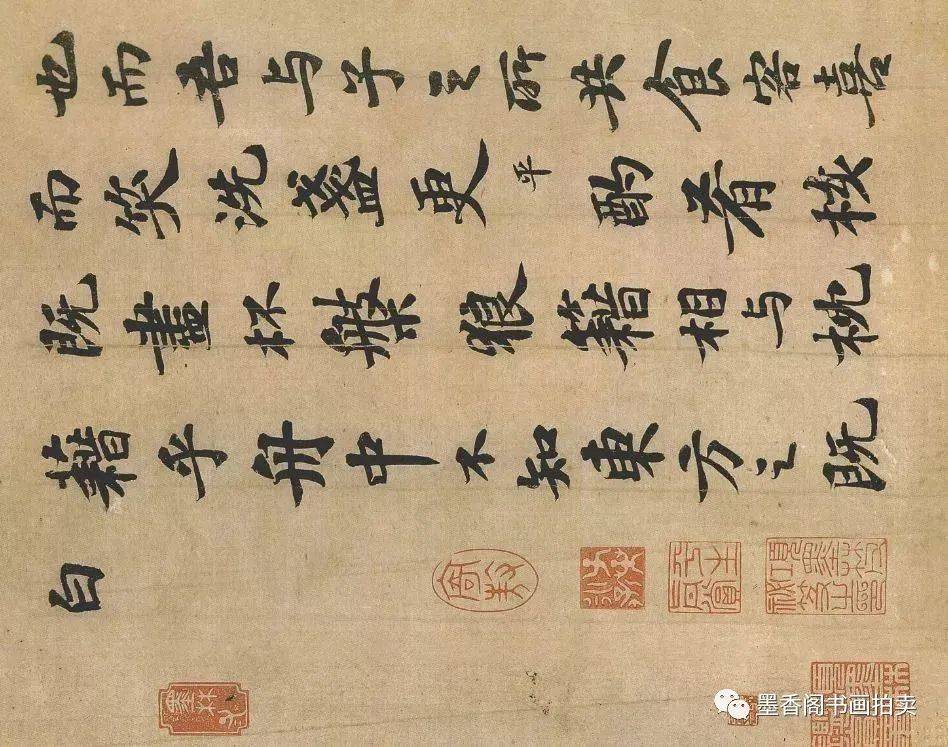 也而吾与子之所共食客喜
而笑洗盞更平酌肴核
既盡杯盤狼籍相与枕
藉乎舟中不知東方之既
白
墨香阁书画拍卖